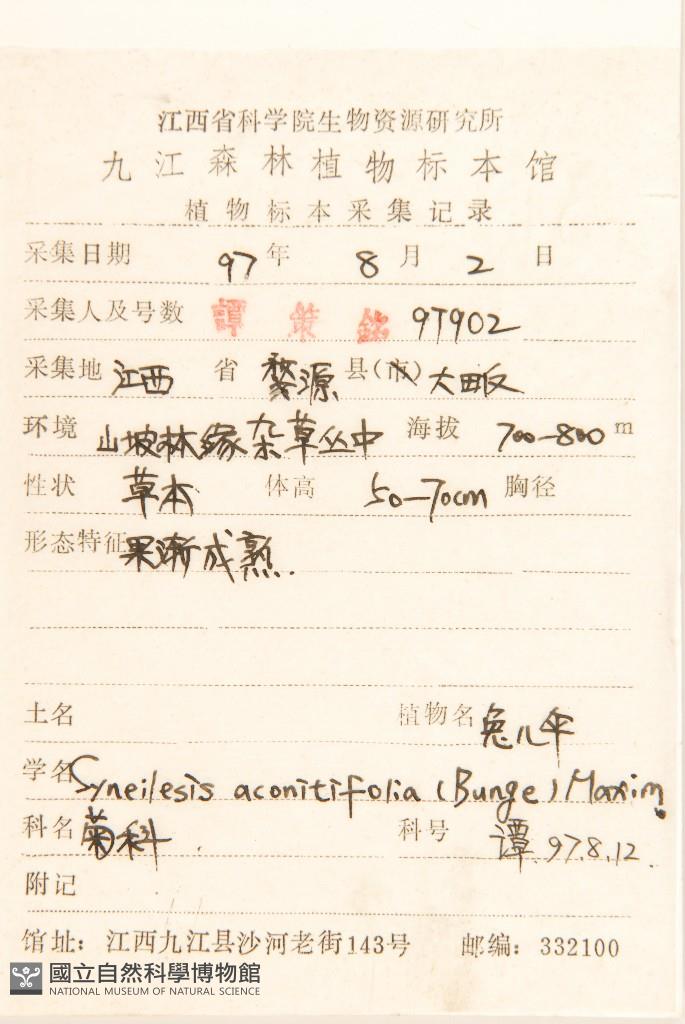 江西省科学院生物资源研究所
九江森林植物标本馆
植物标本采集记录
采集日期 97年 8月 2日
采集人及号数 譚策銘 97902
采集地 江西 省 婺源 县(市) 大畈
环境 山坡林缘杂草丛中 海拔 700-800 m
性状 草本 体高 50-70cm 胸径
形态特征 果渐成熟.
土名 植物名 兔儿伞
学名 Syneilesis aconitifolia (Bunge) Maxim.
科名 菊科 科号 谭 97.8.12.
附记
馆址:江西九江县沙河老街143号 邮编:332100
國立自然科學博物館
NATIONAL MUSEUM OF NATURAL SCIENCE